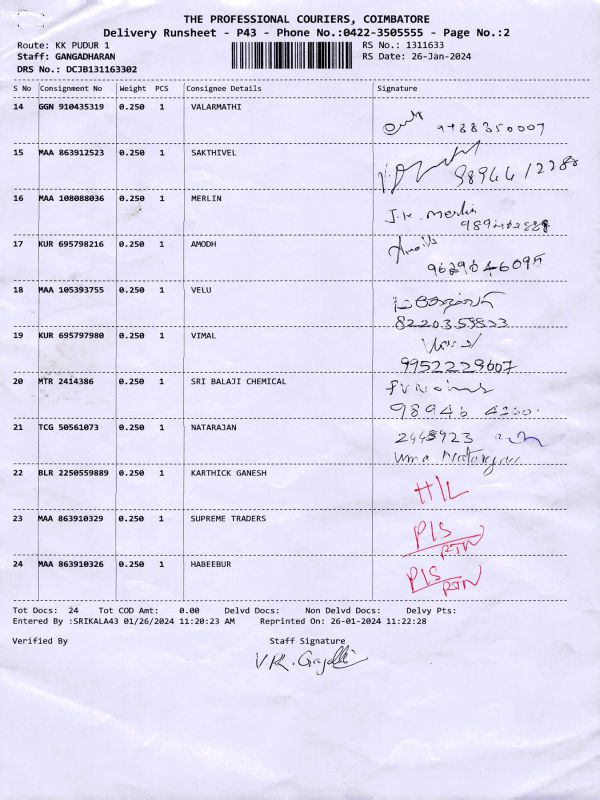 THE PROFESSIONAL COURIERS, COIMBATORE
Delivery Runsheet - P43 - Phone No.:0422-3505555 - Page No.:2
Route: KK PUDUR 1 RS No.: 1311633
Staff: GANGADHARAN RS Date: 26-Jan-2024
DRS No.: DCJB131163302
S No Consignment No Weight PCS Consignee Details Signature
14 GGN 910435319 0.250 1 VALARMATHI
9788350007
15 MAA 863912523 0.250 1 SAKTHIVEL
9894412288
16 MAA 108088036 0.250 1 MERLIN
J.H. Merlin
17 KUR 695798216 0.250 1 AMODH
9629046095
18 MAA 105393755 0.250 1 VELU
8220359833
19 KUR 695797980 0.250 1 VIMAL
9952229607
20 MTR 2414386 0.250 1 SRI BALAJI CHEMICAL
98946
21 TCG 50561073 0.250 1 NATARAJAN
2448923
Uma Natarajan
22 BLR 2250559889 0.250 1 KARTHICK GANESH
H/L
23 MAA 863910329 0.250 1 SUPREME TRADERS
P/S
RTN
24 MAA 863910326 0.250 1 HABEEBUR
P/S
RTN
Tot Docs: 24 Tot COD Amt: 0.00 Delvd Docs: Non Delvd Docs: Delvy Pts:
Entered By :SRIKALA43 01/26/2024 11:20:23 AM Reprinted On: 26-01-2024 11:22:28
Verified By Staff Signature